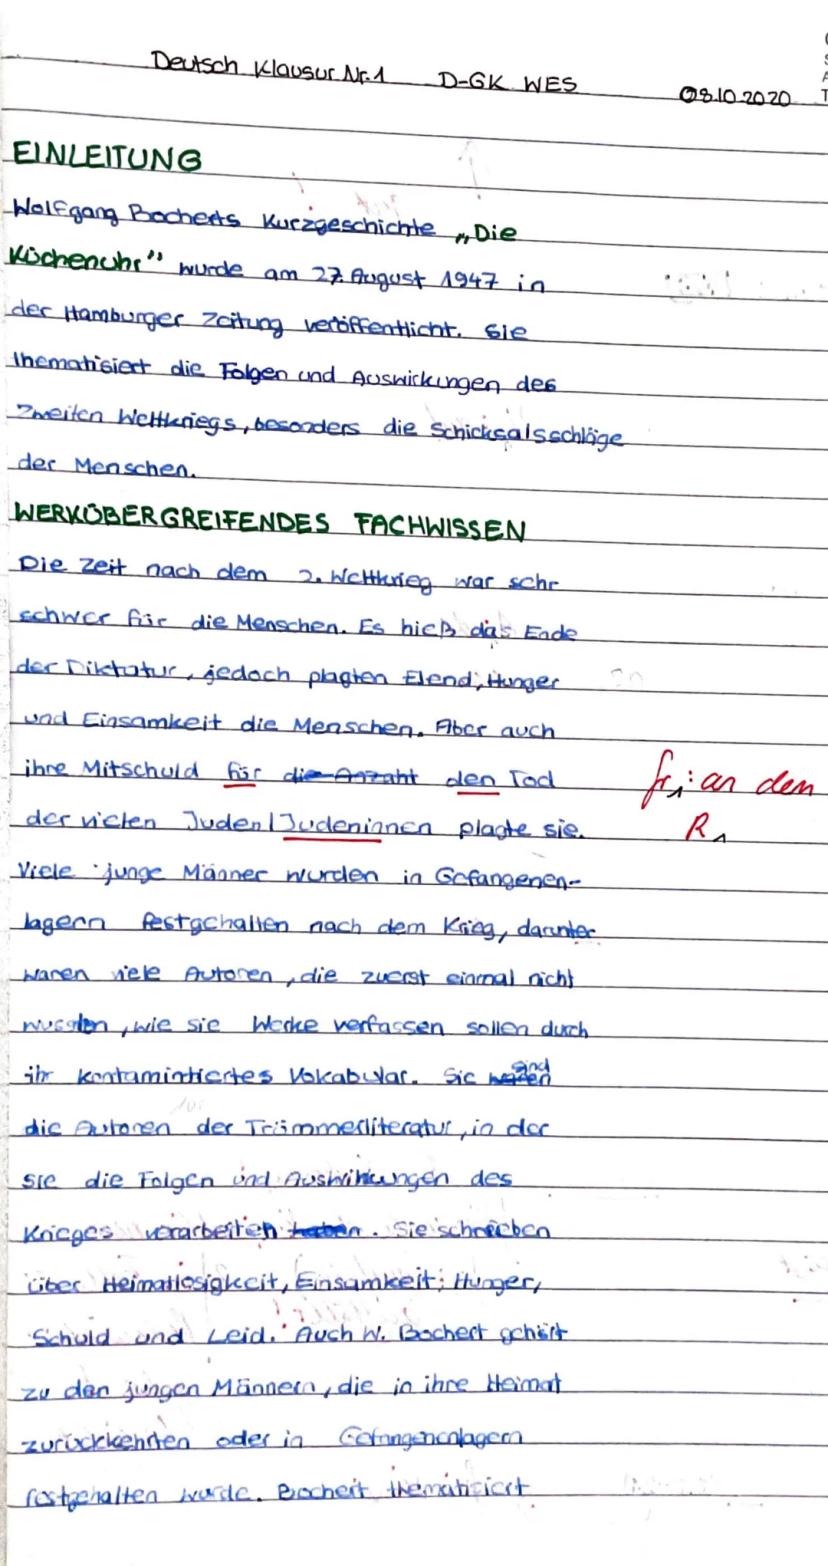 Deutsch Klausur Nr.1 D-GK WES 08.10.2020
EINLEITUNG
Wolfgang Bocherts Kurzgeschichte „Die
Küchenuhr" wurde am 27. August 1947 in
der Hamburger Zeitung veröffentlicht. Sie
thematisiert die Folgen und Auswirkungen des
Zweiten Weltkriegs, besonders die Schicksalsschläge
der Menschen.
WERKÜBERGREIFENDES FACHWISSEN
Die Zeit nach dem 2. Weltkrieg war sehr
schwer für die Menschen. Es hieß das Ende
der Diktatur, jedoch plagten Elend, Hunger
und Einsamkeit die Menschen. Aber auch
ihre Mitschuld für die Anzahl den Tod fr, : an den
der vielen Juden/Judeninnen plagte sie. R
Viele junge Männer wurden in Gefangenen-
lagern festgehalten nach dem Krieg, darunter
waren viele Autoren, die zuerst einmal nicht
wussten, wie sie Werke verfassen sollen durch
ihr kontamintiertes Vokabular. Sie sind
die Autoren der Trümmerliteratur, in der
sie die Folgen und Auswirkungen des
Krieges verarbeiten haben. Sie schreiben
über Heimatlosigkeit, Einsamkeit, Hunger,
Schuld und Leid. Auch W. Bochert gehört
zu den jungen Männern, die in ihre Heimat
zurückkehrten oder in Gefangenenlagern
festgehalten wurde. Bochert thematisiert